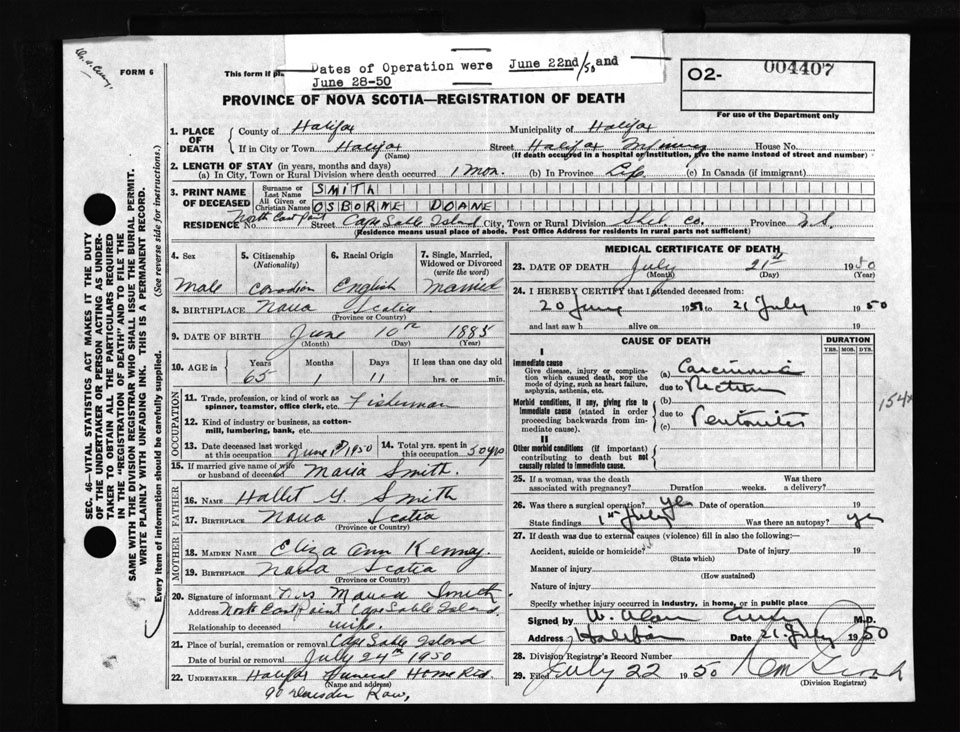 Dates of Operation were June 22nd/50 and
June 28-50
FORM 6
This form if pl
O2- 004407
For use of the Department only
PROVINCE OF NOVA SCOTIA—REGISTRATION OF DEATH
1. PLACE OF DEATH
County of Halifax Municipality of Halifax
If in City or Town Halifax Street Halifax House No.
(Name) (If death occurred in a hospital or institution, give the name instead of street and number)
2. LENGTH OF STAY (in years, months and days)
(a) In City, Town or Rural Division where death occurred 1 mon. (b) In Province Life (c) In Canada (if immigrant)
3. PRINT NAME OF DECEASED
Surname or Last Name SMITH
All Given or Christian Names OSBORNE DOANE
RESIDENCE No. North East Point Street Cape Sable Island City, Town or Rural Division Shel. Co. Province N.S.
(Residence means usual place of abode. Post Office Address for residents in rural parts not sufficient)
4. Sex
Male
5. Citizenship
(Nationality)
Canadian
6. Racial Origin
English
7. Single, Married, Widowed or Divorced
(write the word)
Married
8. BIRTHPLACE Nova Scotia
(Province or Country)
9. DATE OF BIRTH June 10th 1885
(Month) (Day) (Year)
10. AGE in
Years Months Days If less than one day old
65 1 11 hrs. or min.
OCCUPATION
11. Trade, profession, or kind of work as spinner, teamster, office clerk, etc. Fisherman
12. Kind of industry or business, as cotton-mill, lumbering, bank, etc.
13. Date deceased last worked at this occupation June 1950
14. Total yrs. spent in this occupation 50 yrs
15. If married give name of wife or husband of deceased Maria Smith.
FATHER
16. NAME Hallet Y. Smith
17. BIRTHPLACE Nova Scotia
(Province or Country)
MOTHER
18. MAIDEN NAME Eliza Ann Kenney.
19. BIRTHPLACE Nova Scotia
(Province or Country)
20. Signature of informant Mrs Maria Smith
Address North East Point Cape Sable Island,
Relationship to deceased wife.
21. Place of burial, cremation or removal Cape Sable Island
Date of burial or removal July 24th 1950
22. UNDERTAKER Halifax Funeral Home
(Name and address)
Row,
MEDICAL CERTIFICATE OF DEATH
23. DATE OF DEATH July 21st 1950
(Month) (Day) (Year)
24. I HEREBY CERTIFY that I attended deceased from:
20 June 19 to 21 July 1950
and last saw h alive on 19
CAUSE OF DEATH DURATION
YRS. MOS. DYS.
I
Immediate cause
Give disease, injury or complication which caused death, not the mode of dying, such as heart failure, asphyxia, asthenia, etc.
(a) Carcinoma
due to Rectum
Morbid conditions, if any, giving rise to immediate cause (stated in order proceeding backwards from immediate cause).
(b)
due to
(c) Peritonitis
154x
II
Other morbid conditions (if important) contributing to death but not causally related to immediate cause.
25. If a woman, was the death associated with pregnancy? Duration weeks. Was there a delivery?
26. Was there a surgical operation? yes Date of operation 19
State findings 1st July Was there an autopsy? yes
27. If death was due to external causes (violence) fill in also the following:—
Accident, suicide or homicide? Date of injury 19
(State which)
Manner of injury
(How sustained)
Nature of injury
Specify whether injury occurred in industry, in home, or in public place
Signed by W. Alan M.D.
Address Halifax Date 21 July 1950
28. Division Registrar's Record Number
29. Filed July 22 1950
(Division Registrar)
SEC. 46—VITAL STATISTICS ACT MAKES IT THE DUTY
OF THE UNDERTAKER OR PERSON ACTING AS UNDER-
TAKER TO OBTAIN ALL THE PARTICULARS REQUIRED
IN THE "REGISTRATION OF DEATH" AND TO FILE THE
SAME WITH THE DIVISION REGISTRAR WHO SHALL ISSUE THE BURIAL PERMIT.
WRITE PLAINLY WITH UNFADING INK. THIS IS A PERMANENT RECORD.
Every item of information should be carefully supplied. (See reverse side for instructions.)